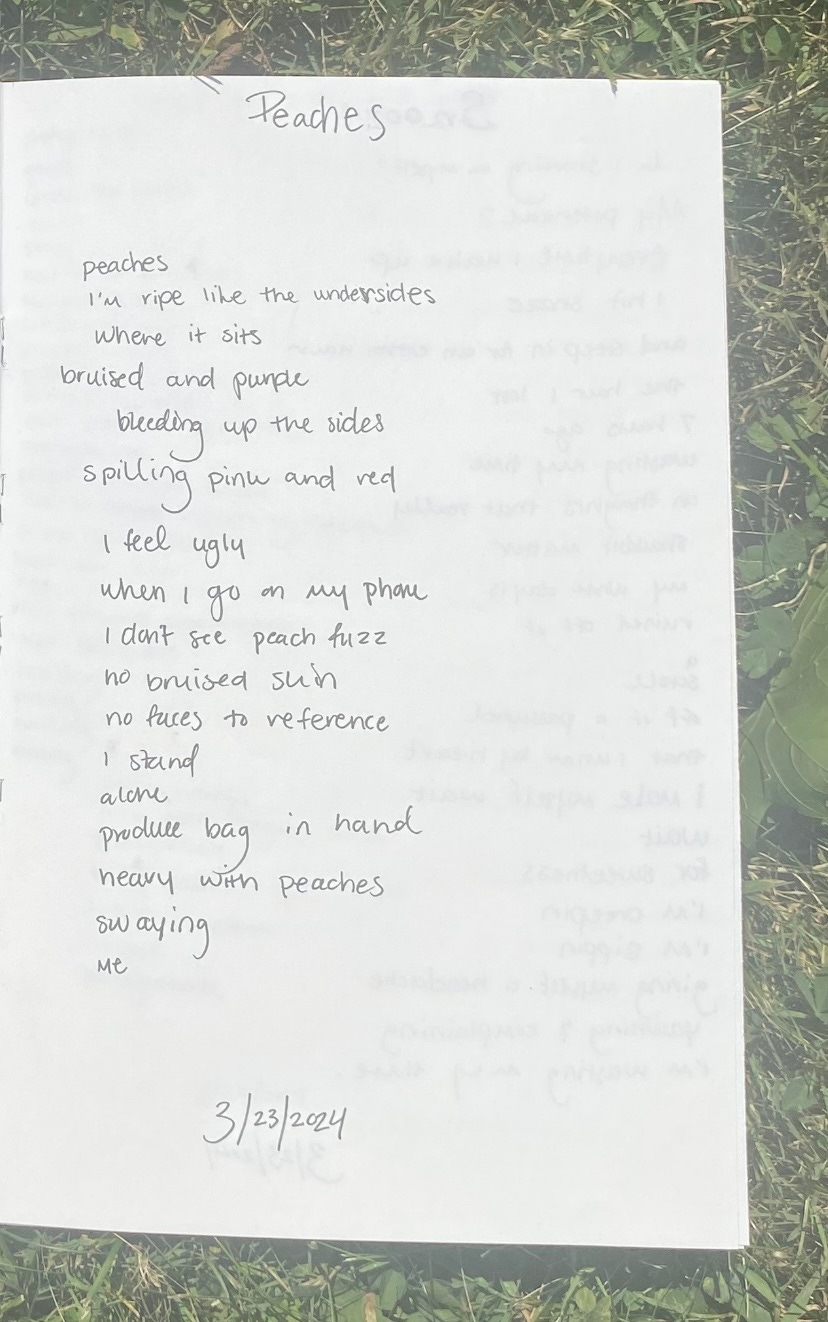 Peaches
peaches
I'm ripe like the undersides
where it sits
bruised and purple
bleeding up the sides
spilling pink and red
I feel ugly
when I go on my phone
I don't see peach fuzz
no bruised skin
no faces to reference
I stand
alone
produce bag in hand
heavy with peaches
swaying
me
3/23/2024